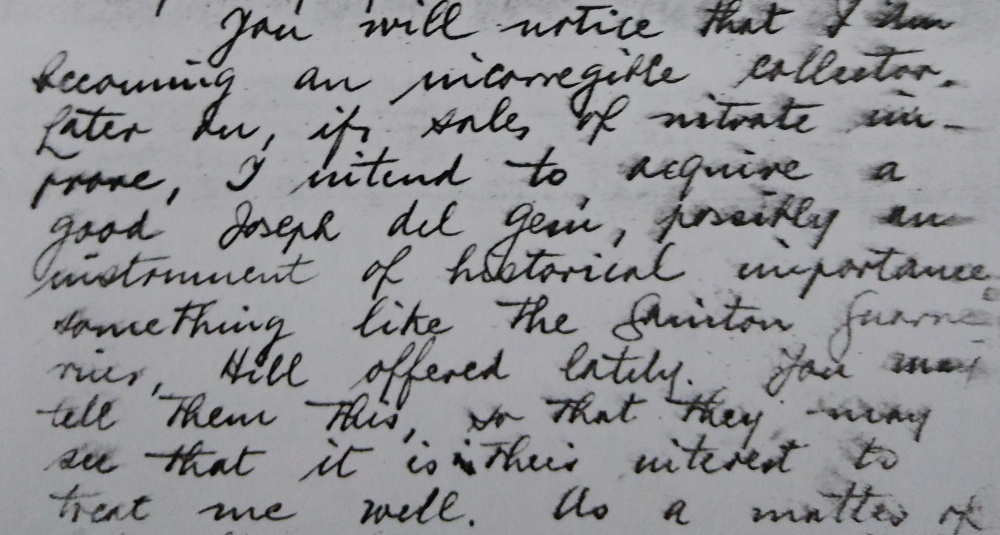 You will notice that I am
becoming an incorregible collector.
Later on, if sales of nitrate im-
prove, I intend to acquire a
good Joseph del Gesu, possibly an
instrument of historical importance
something like the Sainton Guarne
rius, Hill offered lately. You may
tell them this, so that they may
see that it is in their interest to
treat me well. As a matter of